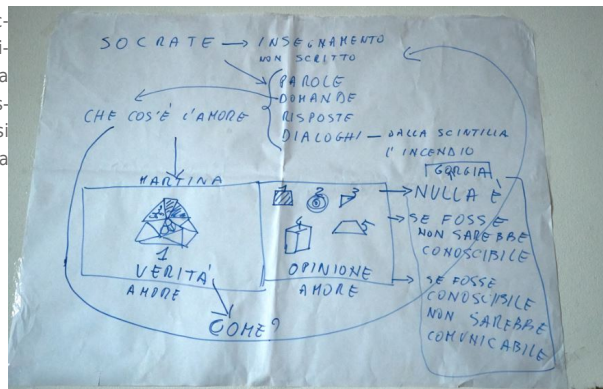 SOCRATE → INSEGNAMENTO
NON SCRITTO
PAROLE
DOMANDE
RISPOSTE
DIALOGHI — DALLA SCINTILLA
L'INCENDIO
CHE COS'È L'AMORE
GORGIA
MARTINA
1
VERITÀ
AMORE
1 2 3
4 5
OPINIONE
AMORE
NULLA È
SE FOSSE
NON SAREBBE
CONOSCIBILE
SE FOSSE
CONOSCIBILE
NON SAREBBE
COMUNICABILE
COME?